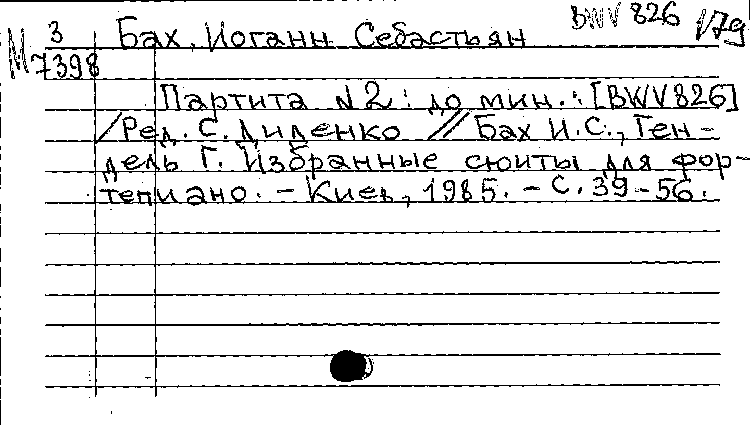 BWV 826 179
М 3 Бах, Иоганн Себастьян
7398
Партита №2: до мин.: [BWV826]
/Ред. С. Диденко // Бах И.С., Ген-
дель Г. Избранные сюиты для фор-
тепиано. – Киев, 1985. – С. 39-56.